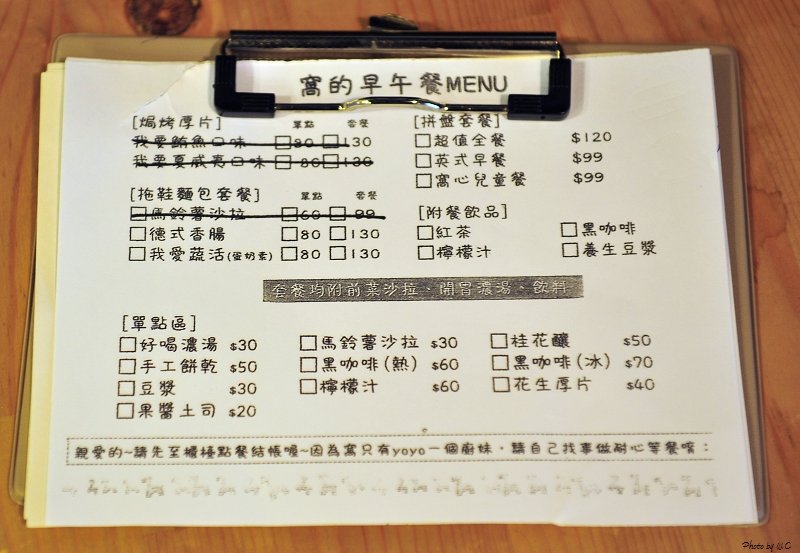 窩的早午餐MENU
[焗烤厚片] 單點 套餐
我要鮪魚口味 □80 □130
我要夏威夷口味 □80 □130
[拖鞋麵包套餐] 單點 套餐
□馬鈴薯沙拉 □60 □99
□德式香腸 □80 □130
□我愛蔬活(蛋奶素) □80 □130
[拼盤套餐]
□超值全餐 $120
□英式早餐 $99
□窩心兒童餐 $99
[附餐飲品]
□紅茶 □黑咖啡
□檸檬汁 □養生豆漿
套餐均附前菜沙拉、開胃濃湯、飲料
[單點區]
□好喝濃湯 $30 □馬鈴薯沙拉 $30 □桂花釀 $50
□手工餅乾 $50 □黑咖啡(熱) $60 □黑咖啡(冰) $70
□豆漿 $30 □檸檬汁 $60 □花生厚片 $40
□果醬土司 $20
親愛的~請先至櫃檯點餐結帳喔~因為窩只有yoyo一個廚妹，請自己找事做耐心等餐唷：
Photo by W.C